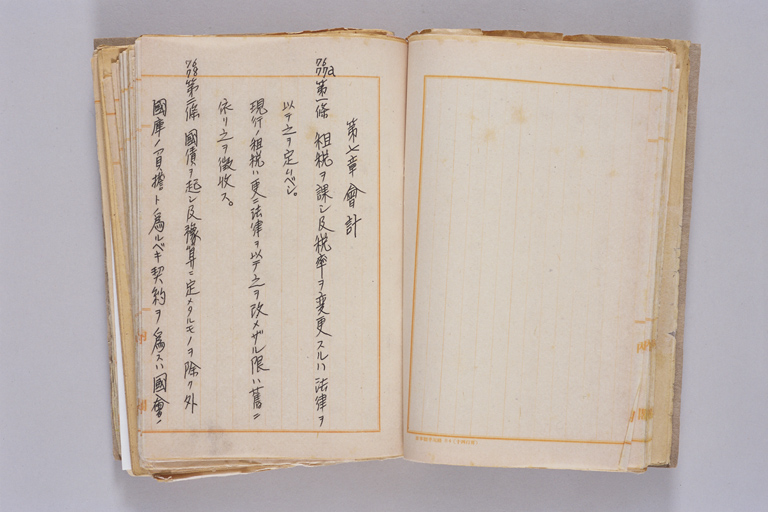 第七章 會計
76 77a 第一條 租税ヲ課シ及税率ヲ変更スルハ法律ヲ
以テ之ヲ定ムベシ。
現行ノ租税ハ更ニ法律ヲ以テ之ヲ改メザル限ハ舊ニ
依リ之ヲ徴收ス。
76 78 第二條 國債ヲ起シ及豫算ニ定メタルモノヲ除ク外
國庫ノ負擔ト爲ルベキ契約ヲ爲スハ國會ノ